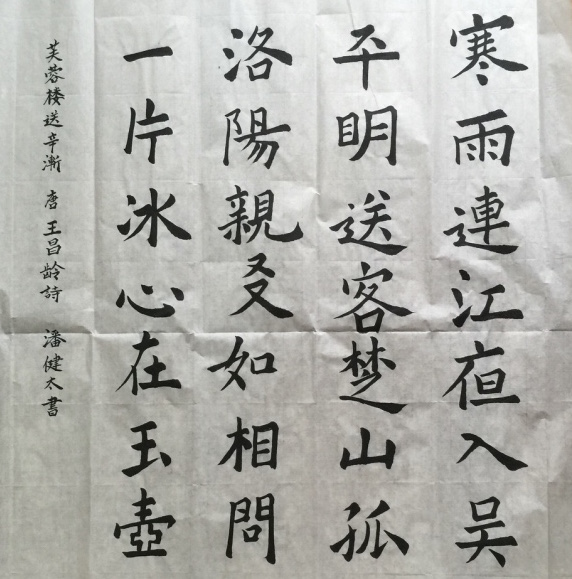 寒雨連江亱入吴
平眀送客椘山孤
洛陽親㕛如相問
一片冰心在玉壺
芙蓉楼送辛漸 唐 王昌龄詩 潘健太書